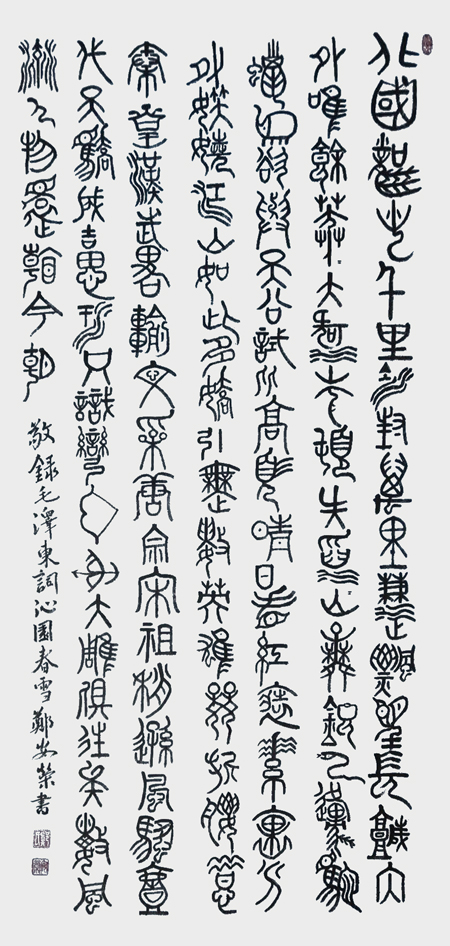 北國風光千里冰封萬里雪飄望長城内
外唯餘莽〻大河上下頓失滔〻山舞銀蛇原馳
蠟象欲與天公試比高須晴日看紅裝素裹分
外妖嬈江山如此多嬌引無數英雄競折腰惜
秦皇漢武略輸文采唐宗宋祖稍遜風騷壹
代天驕成吉思汗只識彎弓射大雕俱往矣數風
流人物還看今朝
敬錄毛澤東詞沁園春雪鄭安榮書